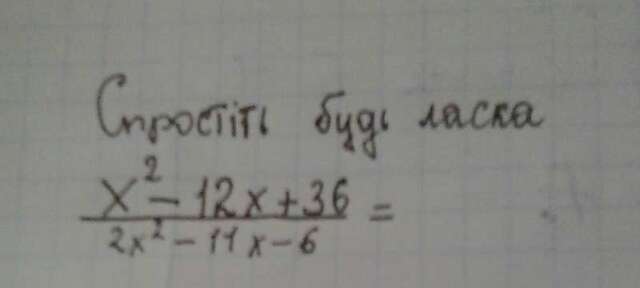 Спростіть будь ласка
x² - 12x + 36 =
2x² - 11x - 6